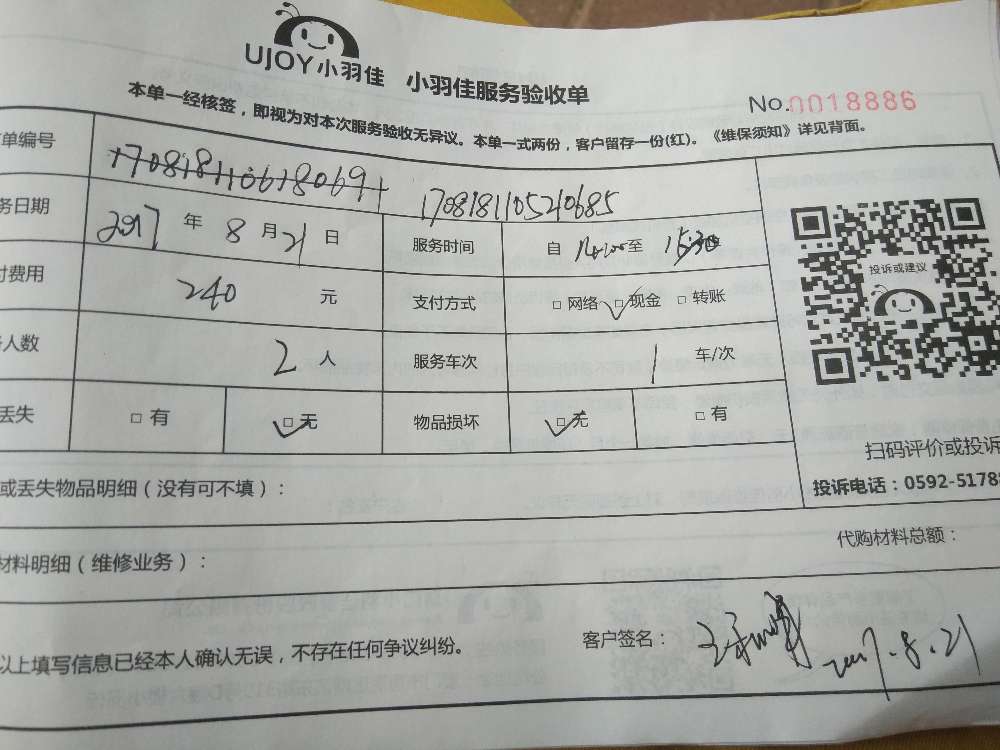 UJOY小羽佳 小羽佳服务验收单
No.0018886
本单一经核签，即视为对本次服务验收无异议。本单一式两份，客户留存一份(红)。《维保须知》详见背面。
单编号 1708181105210685
务日期 2017 年 8 月 21 日 服务时间 自 至 15:30
投诉或建议
付费用 240 元 支付方式 □ 网络 □ 现金 □ 转账
人数 2 人 服务车次 1 车/次
丢失 □ 有 □ 无 物品损坏 □ 无 □ 有
扫码评价或投诉
或丢失物品明细（没有可不填）：
投诉电话：0592-5178
材料明细（维修业务）：
代购材料总额：
以上填写信息已经本人确认无误，不存在任何争议纠纷。
客户签名： 2017.8.21